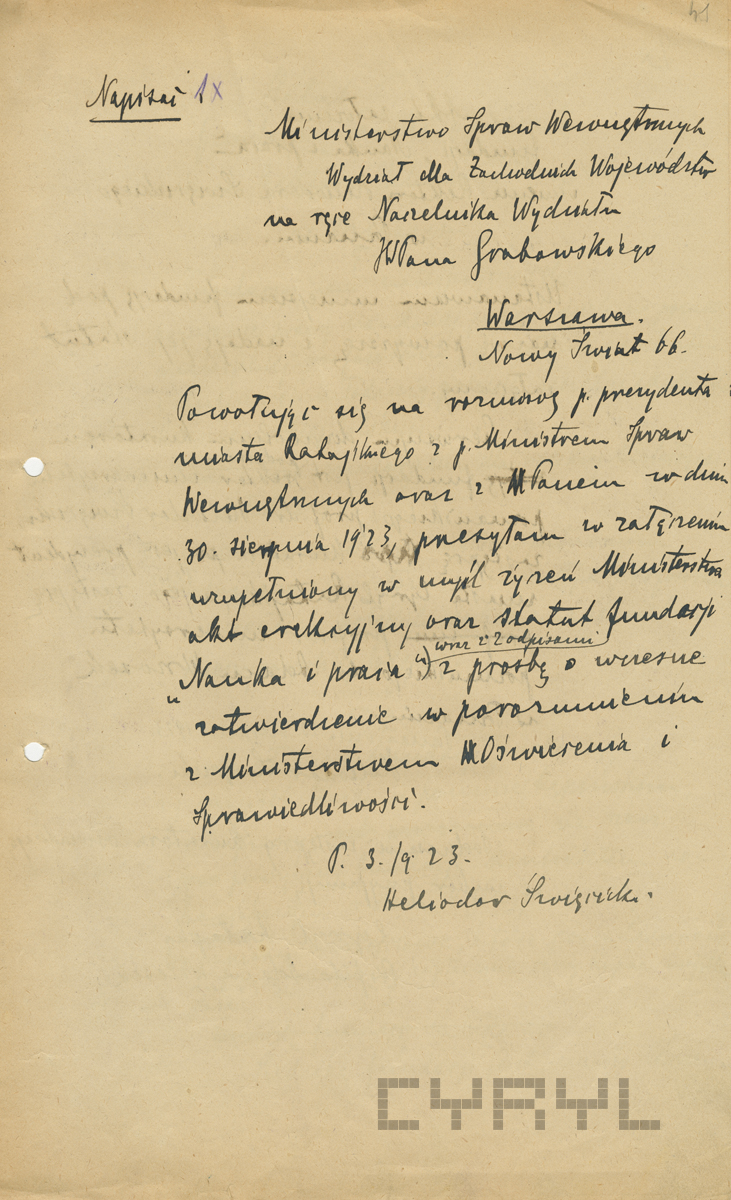 41
Napisać 1x
Ministerstwo Spraw Wewnętrznych
Wydział dla Zachodnich Województw
na ręce Naczelnika Wydziału
JWPana Grabowskiego
Warszawa.
Nowy Świat 66.
Powołując się na rozmowę p. prezydenta
miasta Ratajskiego z p. Ministrem Spraw
Wewnętrznych oraz z Panem w dniu
30. sierpnia 1923, przesyłam w załączeniu
uzupełniony w myśl życzeń Ministerstwa
akt erekcyjny oraz statut fundacji
wraz z 2 odpisami
"Nauka i praca" z prośbę o wczesne
zatwierdzenie w porozumieniu
z Ministerstwem Oświecenia i
Sprawiedliwości.
P. 3./9. 23.
Heliodor Święcicki.
CYRYL